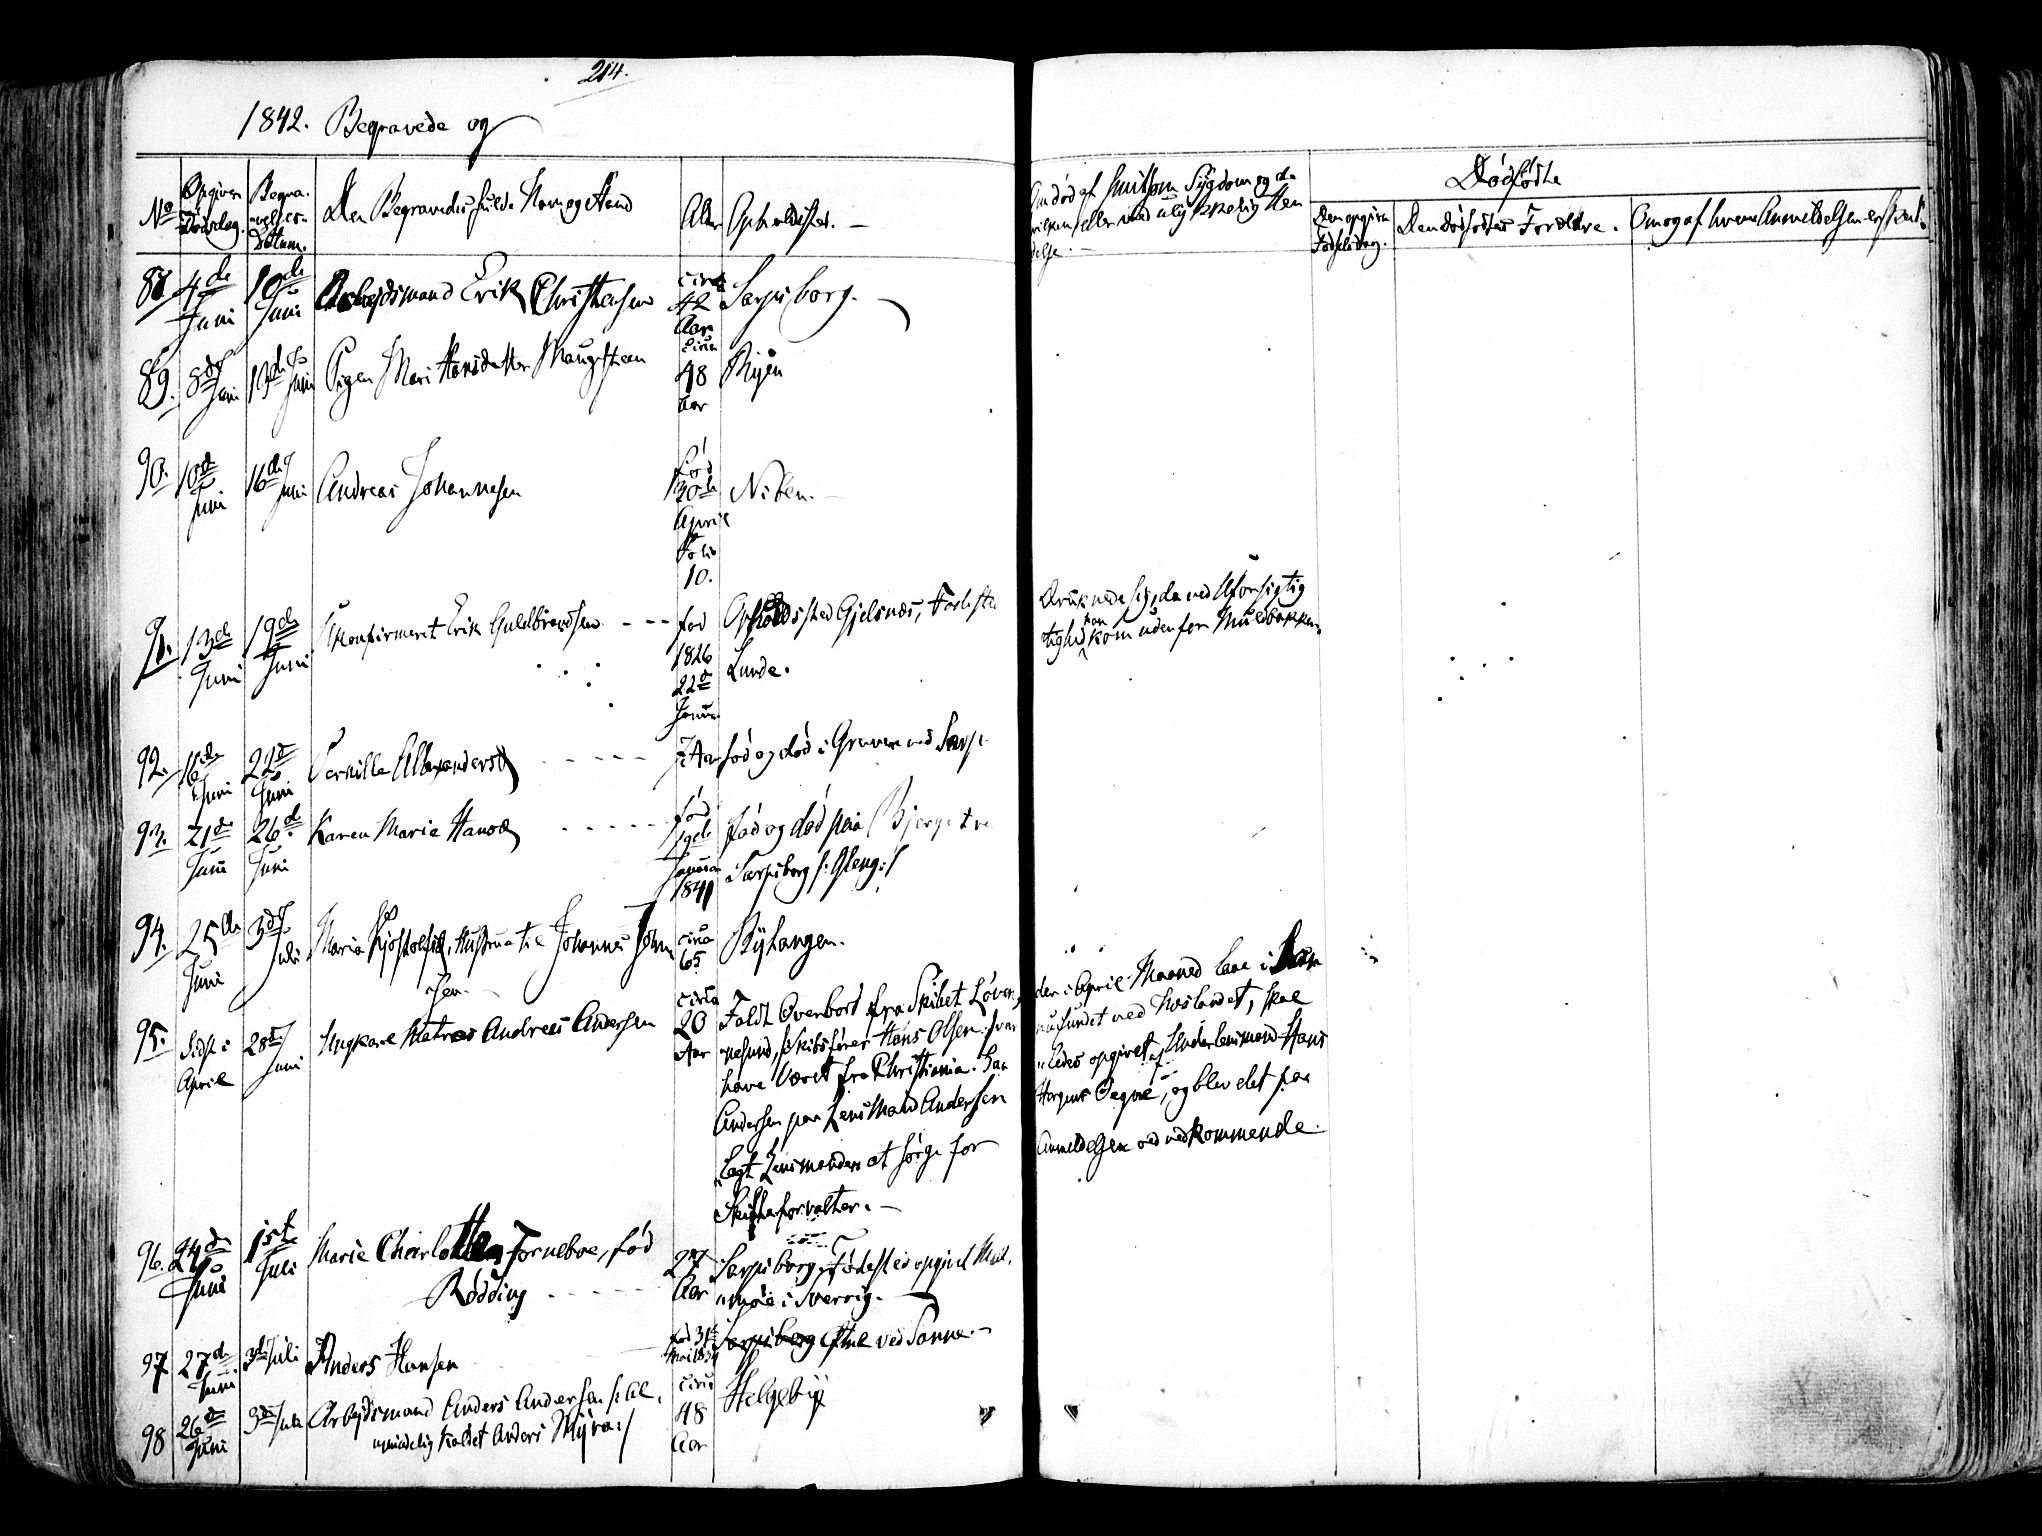 214.
1842. Begravede og
No
Opgiven Dødsdag.
Begravelses-datum.
Den Begravedes fulde Navn og Stand
Alder
Opholdssted. —
Om død af smitsom Sygdom og da
eller ved ulykkelig Hen
delse. —
Dødfødte
Den opgivn Fødselsdag.
Den dødfødtes Forældre.
Om og af hvem Anmeldelsen er skeet.
4de Juni
10de Juni
Arbejdsmand Erik Christensen
circa 42 Aar
Sarpsborg.
89.
8de Juni
13de Juni
Pigen Mari Hansdatter Maugsteen
circa 48 Aar
Ryen
90.
10de Juni
16de Juni
Andreas Johannesen
fød
April
Folio
10.
91.
13de Juni
19de Juni
Ukonfirmert Erik Guldbrandsen
fød
1826
22de
Janua
Opholdssted Gjelsnæs, Fødested
Lunde.
Druknede sig, da ved Uforsigtig
tighed han kom udenfor Muldbakken.
92.
16de Juni
22de Juni
Pernille Alexandersd
7 Aar
fød og død i Graven ved Sarp
93.
21de Juni
26de Juni
Karen Maria Hansd
fød
19de
Januar
1841
fød og død paa Bjerget ve
Sarpsborg /: Øleng :/
94.
25de Juni
3de Juli
Maria Kjostolfsd, Hustrue til Johannes Johan
sen.
circa 65
Rytangen.
95.
Sidst i April
28de Juni
Ungkarl Matros Andreas Andersen
circa 20 Aar
Faldt Overbord fra Skibet Løven,
nesund, Skibsfører Hans Olsen
have været fra Christiania.
Andersen paa Lensmand Andersen
lagt Lensmanden at sørge for
Skifteforvalter. —
der i April Maaned laae i
nufundet ved Huslandet, skal
ledes opgivet af Underlensmand Hans
Anmeldelsen ved vedkommende.
96.
24de Juni
1ste Juli
Marie Charlotte Torneboe, fød
Rödding
27 Aar
Sarpsborg, Fødested opgivet Mal-
møe i Sverrig. —
97
27de Juni
3de Juli
Anders Hansen
fød 31te
Mai 1834
ved Sanne. —
98
26de Juni
3de Juli
Arbejdsmand Anders Andersen /: al-
mindelig kaldet Anders Myra :/
circa
48
Aar
Helgeby